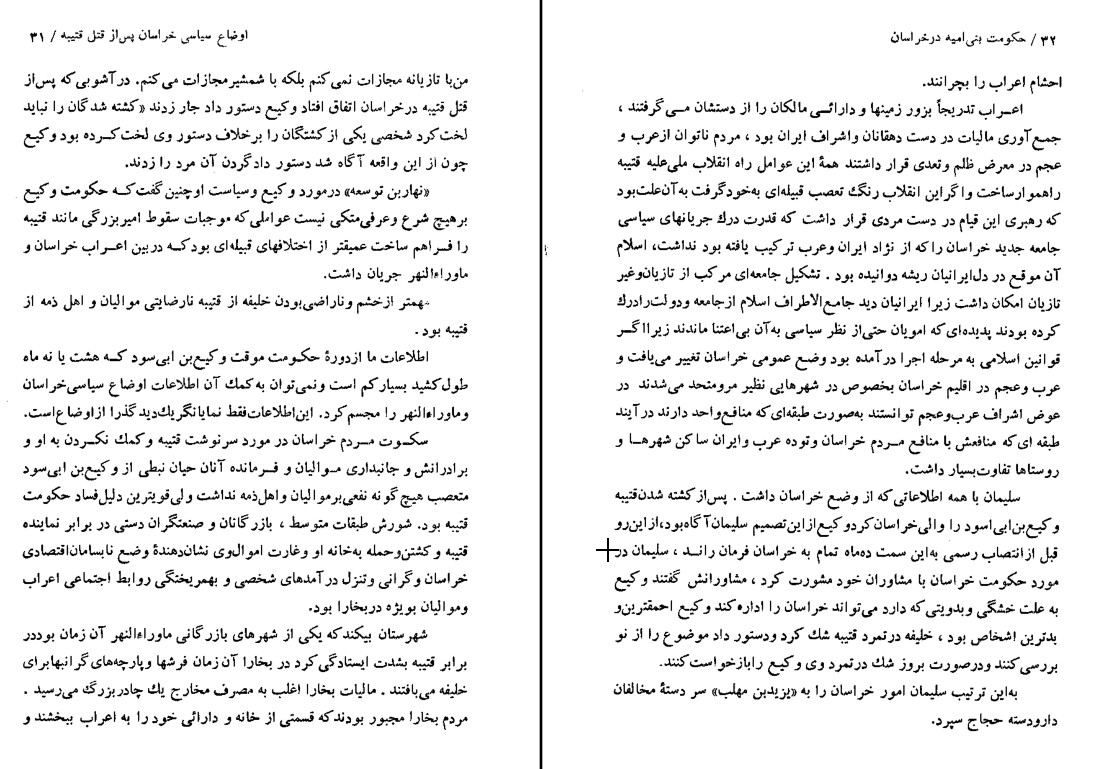 اوضاع سیاسی خراسان پس‌از قتل قتیبه / ۳۱
من‌با تازیانه مجازات نمی‌کنم بلکه با شمشیر مجازات می‌کنم. در آشوبی‌که پس‌از
قتل قتیبه درخراسان اتفاق افتاد وکیع دستور داد جار زدند «کشته شدگان را نباید
لخت‌کرد شخصی یکی از کشتگان را برخلاف دستور وی لخت‌کرده بود وکیع
چون از این واقعه آگاه شد دستور داد گردن آن مرد را زدند.
«نهاربن توسعه» درمورد وکیع وسیاست او چنین گفت‌که حکومت وکیع
برهیچ شرع وعرفی‌متکی نیست عواملی‌که موجبات سقوط امیربزرگی مانند قتیبه
را فراهم ساخت عمیقتر از اختلافهای قبیله‌ای بودکه دربین اعراب خراسان و
ماوراءالنهر جریان داشت.
مهمتر ازخشم وناراضی‌بودن خلیفه از قتیبه نارضایتی موالیان و اهل ذمه از
قتیبه بود .
اطلاعات ما ازدورهٔ حکومت موقت وکیع‌بن ابی‌سود که هشت یا نه ماه
طول‌کشید بسیار کم است ونمی‌توان به‌کمك آن اطلاعات اوضاع سیاسی‌خراسان
وماوراءالنهر را مجسم‌کرد. این‌اطلاعات‌فقط نمایانگریك‌دید گذرا ازاوضاع‌است.
سکوت مردم خراسان در مورد سرنوشت قتیبه وکمك نکردن به او و
برادرانش و جانبداری موالیان و فرمانده آنان حیان نبطی از وکیع‌بن ابی‌سود
متعصب هیچ گونه نفعی‌برموالیان واهل‌ذمه نداشت ولی‌قویترین دلیل‌فساد حکومت
قتیبه بود. شورش طبقات متوسط ، بازرگانان و صنعتگران دستی در برابر نماینده
قتیبه وکشتن‌وحمله به‌خانه او وغارت اموال‌وی نشان‌دهندهٔ وضع نابسامان‌اقتصادی
خراسان وگرانی وتنزل درآمدهای شخصی و بهمریختگی روابط اجتماعی اعراب
وموالیان بویژه دربخارا بود.
شهرستان بیکندکه یکی از شهرهای بازرگانی ماوراءالنهر آن زمان بوددر
برابر قتیبه بشدت ایستادگی‌کرد در بخارا آن زمان فرشها وپارچه‌های‌گرانبهابرای
خلیفه می‌بافتند . مالیات بخارا اغلب به مصرف مخارج یك چادربزرگ می‌رسید .
مردم بخارا مجبور بودندکه قسمتی از خانه و دارائی خود را به اعراب ببخشند و
۳۲ / حکومت بنی‌امیه درخراسان
احشام اعراب را بچرانند.
اعراب تدریجاً بزور زمینها و دارائی مالکان را از دستشان می‌گرفتند ،
جمع‌آوری مالیات در دست دهقانان واشراف ایران بود ، مردم ناتوان ازعرب و
عجم در معرض ظلم وتعدی قرار داشتند همهٔ این عوامل راه انقلاب ملی‌علیه قتیبه
راهموارساخت واگراین انقلاب رنگ تعصب قبیله‌ای به‌خودگرفت به‌آن‌علت‌بود
که رهبری این قیام در دست مردی قرار داشت که قدرت درك جریانهای سیاسی
جامعه جدید خراسان راکه از نژاد ایران وعرب ترکیب یافته بود نداشت، اسلام
آن موقع در دل‌ایرانیان ریشه دوانیده بود . تشکیل جامعه‌ای مرکب از تازیان‌وغیر
تازیان امکان داشت زیرا ایرانیان دید جامع‌الاطراف اسلام ازجامعه ودولت‌رادرك
کرده بودند پدیده‌ای‌که امویان حتی‌از نظر سیاسی به‌آن بی‌اعتنا ماندند زیرااگر
قوانین اسلامی به مرحله اجرا درآمده بود وضع عمومی خراسان تغییر می‌یافت و
عرب وعجم در اقلیم خراسان بخصوص در شهرهایی نظیر مرومتحد می‌شدند در
عوض اشراف عرب‌وعجم توانستند به‌صورت طبقه‌ای‌که منافع‌واحد دارند درآیند
طبقه ای‌که منافعش با منافع مردم خراسان وتوده عرب وایران ساکن شهرها و
روستاها تفاوت‌بسیار داشت.
سلیمان با همه اطلاعاتی‌که از وضع خراسان داشت . پس‌از کشته شدن‌قتیبه
وکیع‌بن‌ابی‌اسود را والی‌خراسان‌کردوکیع‌ازاین‌تصمیم سلیمان‌آگاه‌بود،ازاین‌رو
قبل ازانتصاب رسمی به‌این سمت ده‌ماه تمام به خراسان فرمان راند ، سلیمان در
مورد حکومت خراسان با مشاوران خود مشورت کرد ، مشاورانش گفتند وکیع
به علت خشگی وبدویتی‌که دارد می‌تواند خراسان را اداره‌کند وکیع احمقترین‌و
بدترین اشخاص بود ، خلیفه درتمرد قتیبه شك کرد ودستور داد موضوع را از نو
بررسی‌کنند ودرصورت بروز شك درتمرد وی وکیع رابازخواست‌کنند.
به‌این ترتیب سلیمان امور خراسان را به «یزیدبن مهلب» سر دستهٔ مخالفان
دارودسته حجاج سپرد.